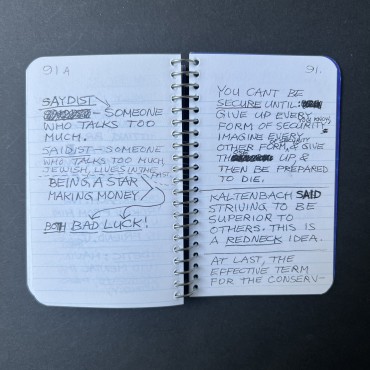 91A
SAYDIST
– SOMEONE
WHO TALKS TOO
MUCH.
SAIDIST – SOMEONE
WHO TALKS TOO MUCH,
JEWISH, LIVES IN THE EAST
BEING A STAR
MAKING MONEY
BOTH BAD LUCK!
91.
YOU CANT BE
SECURE UNTIL:
GIVE UP EVERY
FORM OF SECURITY.
YOU KNOW
IMAGINE EVERY
OTHER FORM, & GIVE
UP, &
THEN BE PREPARED
TO DIE.
KALTENBACH SAID
STRIVING TO BE
SUPERIOR TO
OTHERS. THIS IS
A REDNECK IDEA.
AT LAST, THE
EFFECTIVE TERM
FOR THE CONSERV–